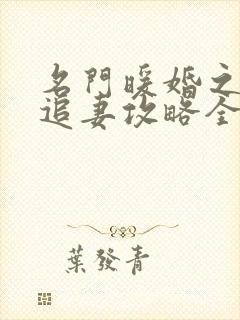 名門暖婚之
追妻攻略全
葉發青